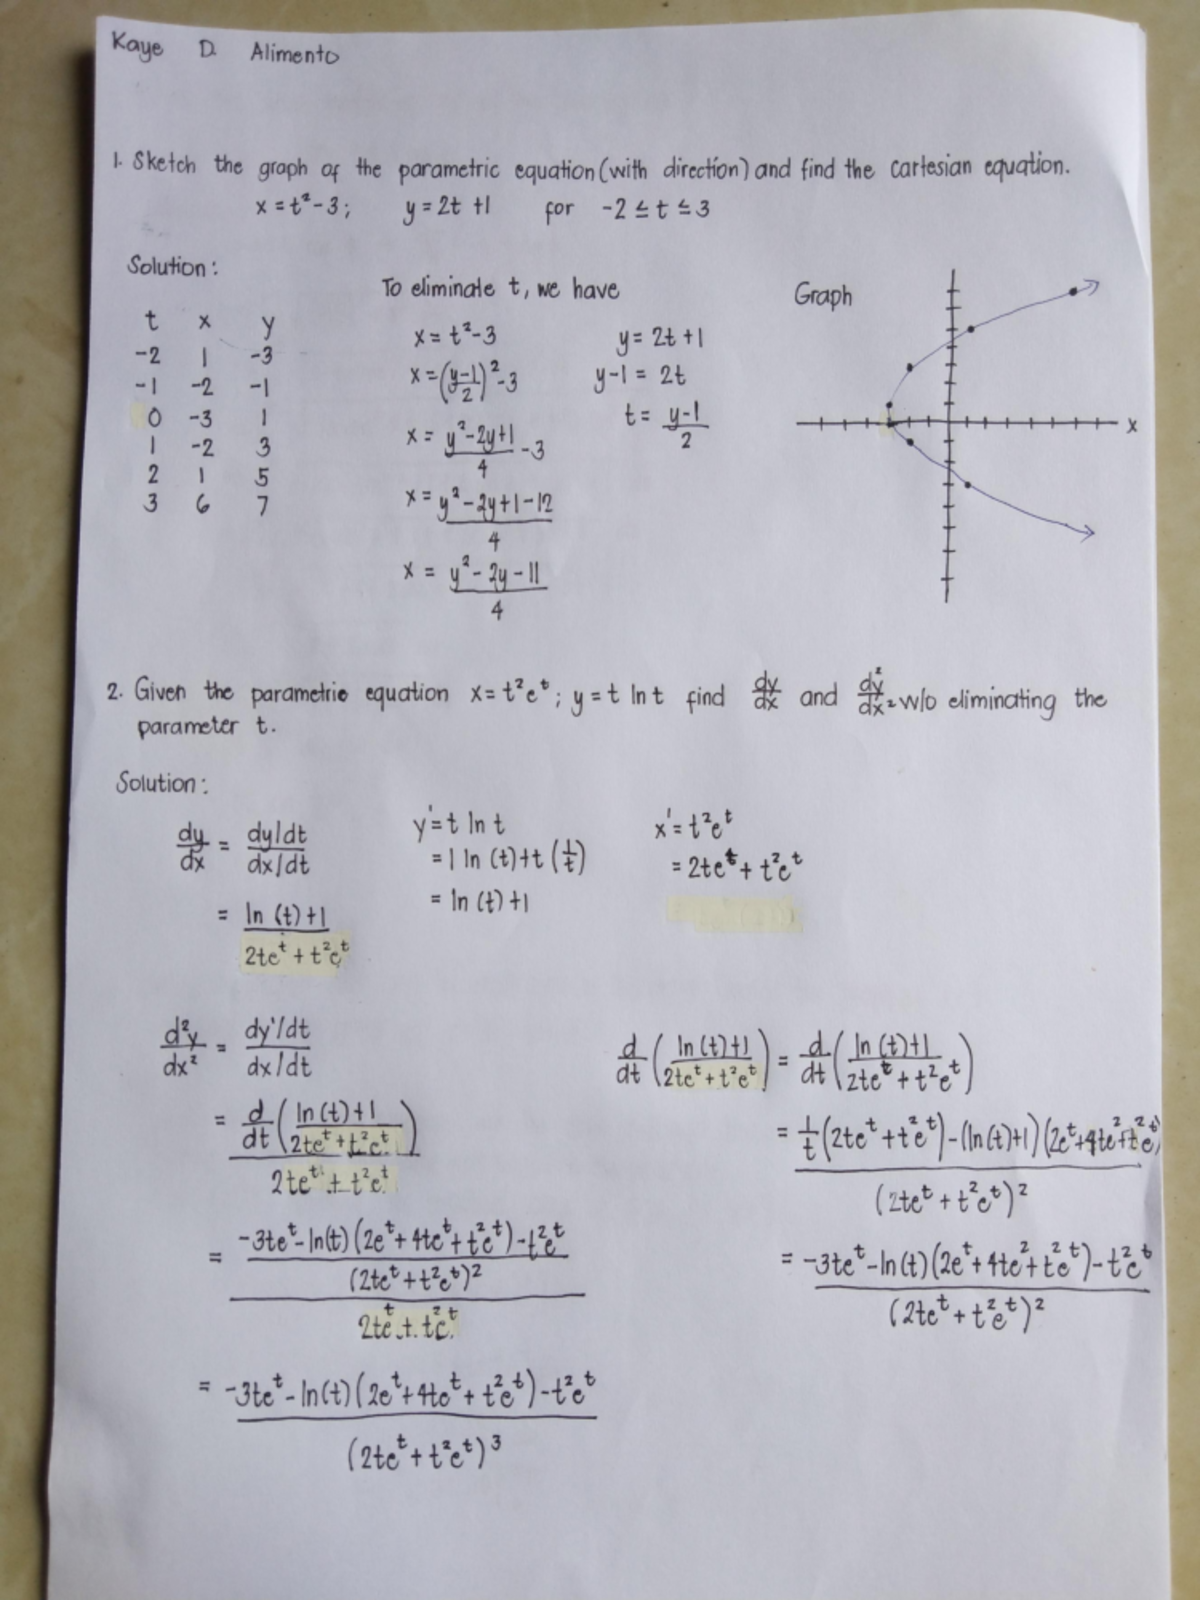 Kaye D. Alimento
1. Sketch the graph of the parametric equation (with direction) and find the cartesian equation.
x = t² - 3; y = 2t + 1 for -2 ≤ t ≤ 3
Solution:
t x y
-2 1 -3
-1 -2 -1
0 -3 1
1 -2 3
2 1 5
3 6 7
To eliminate t, we have
x = t² - 3
x = ((y-1)/2)² - 3
x = (y² - 2y + 1)/4 - 3
x = (y² - 2y + 1 - 12)/4
x = (y² - 2y - 11)/4
y = 2t + 1
y - 1 = 2t
t = (y-1)/2
Graph
x
2. Given the parametric equation x = t²e^t; y = t ln t find dy/dx and d²y/dx² w/o eliminating the
parameter t.
Solution:
dy/dx = (dy/dt)/(dx/dt)
= (ln (t) + 1)/(2te^t + t²e^t)
y' = t ln t
= 1 ln (t) + t (1/t)
= ln (t) + 1
x' = t²e^t
= 2te^t + t²e^t
d²y/dx² = (dy'/dt)/(dx/dt)
= (d/dt ((ln (t) + 1)/(2te^t + t²e^t)))/(2te^t + t²e^t)
= ((-3te^t - ln(t) (2e^t + 4te^t + t²e^t) - t²e^t)/(2te^t + t²e^t)²)/(2te^t + t²e^t)
= (-3te^t - ln(t) (2e^t + 4te^t + t²e^t) - t²e^t)/(2te^t + t²e^t)³
d/dt ((ln (t) + 1)/(2te^t + t²e^t)) = d/dt ((ln (t) + 1)/(2te^t + t²e^t))
= (1/t (2te^t + t²e^t) - (ln(t) + 1) (2e^t + 4te^t + t²e^t))/(2te^t + t²e^t)²
= (-3te^t - ln(t) (2e^t + 4te² + t²e^t) - t²e^t)/(2te^t + t²e^t)²